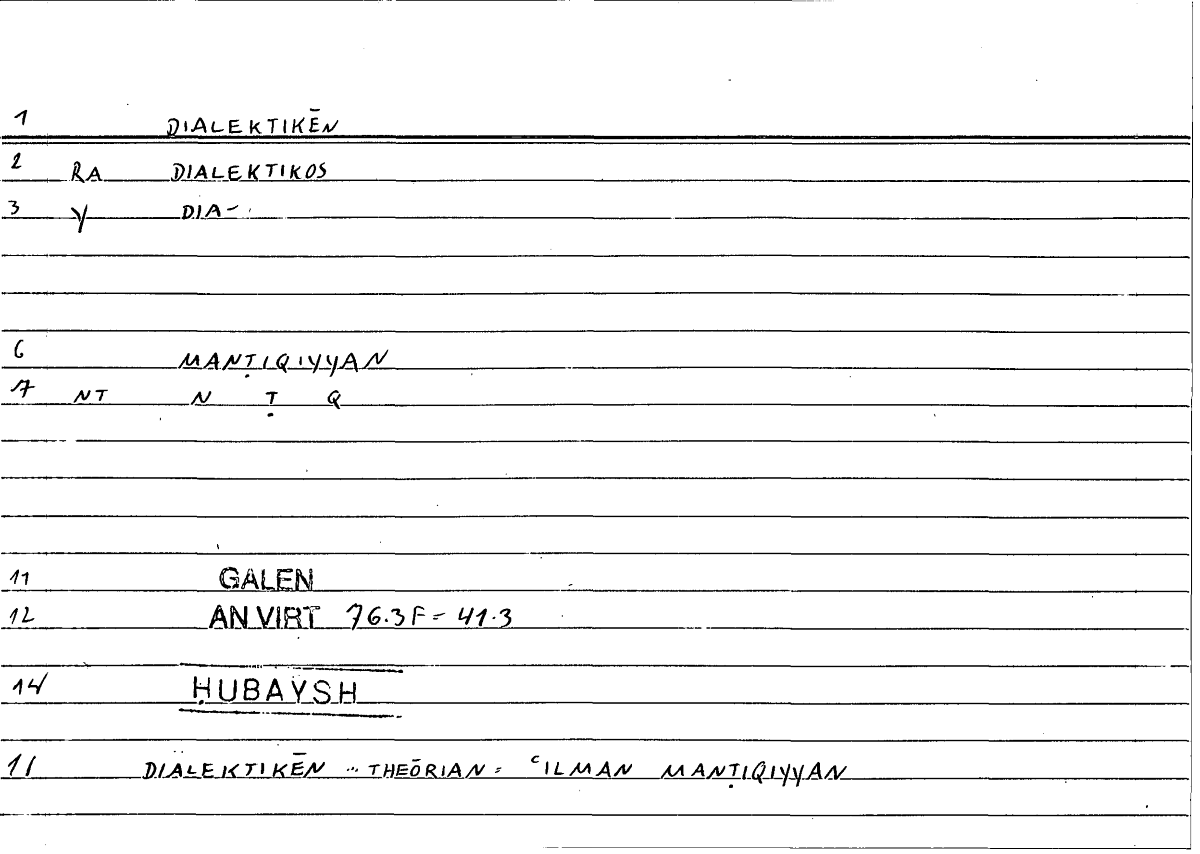 1 DIALEKTIKĒN
2 RA DIALEKTIKOS
3 Y DIA-
6 MANṬIQIYYAN
7 NT N Ṭ Q
11 GALEN
12 AN VIRT 76.3F = 41.3
14 ḤUBAYSH
11 DIALEKTIKĒN ... THEŌRIAN = ʿILMAN MANṬIQIYYAN